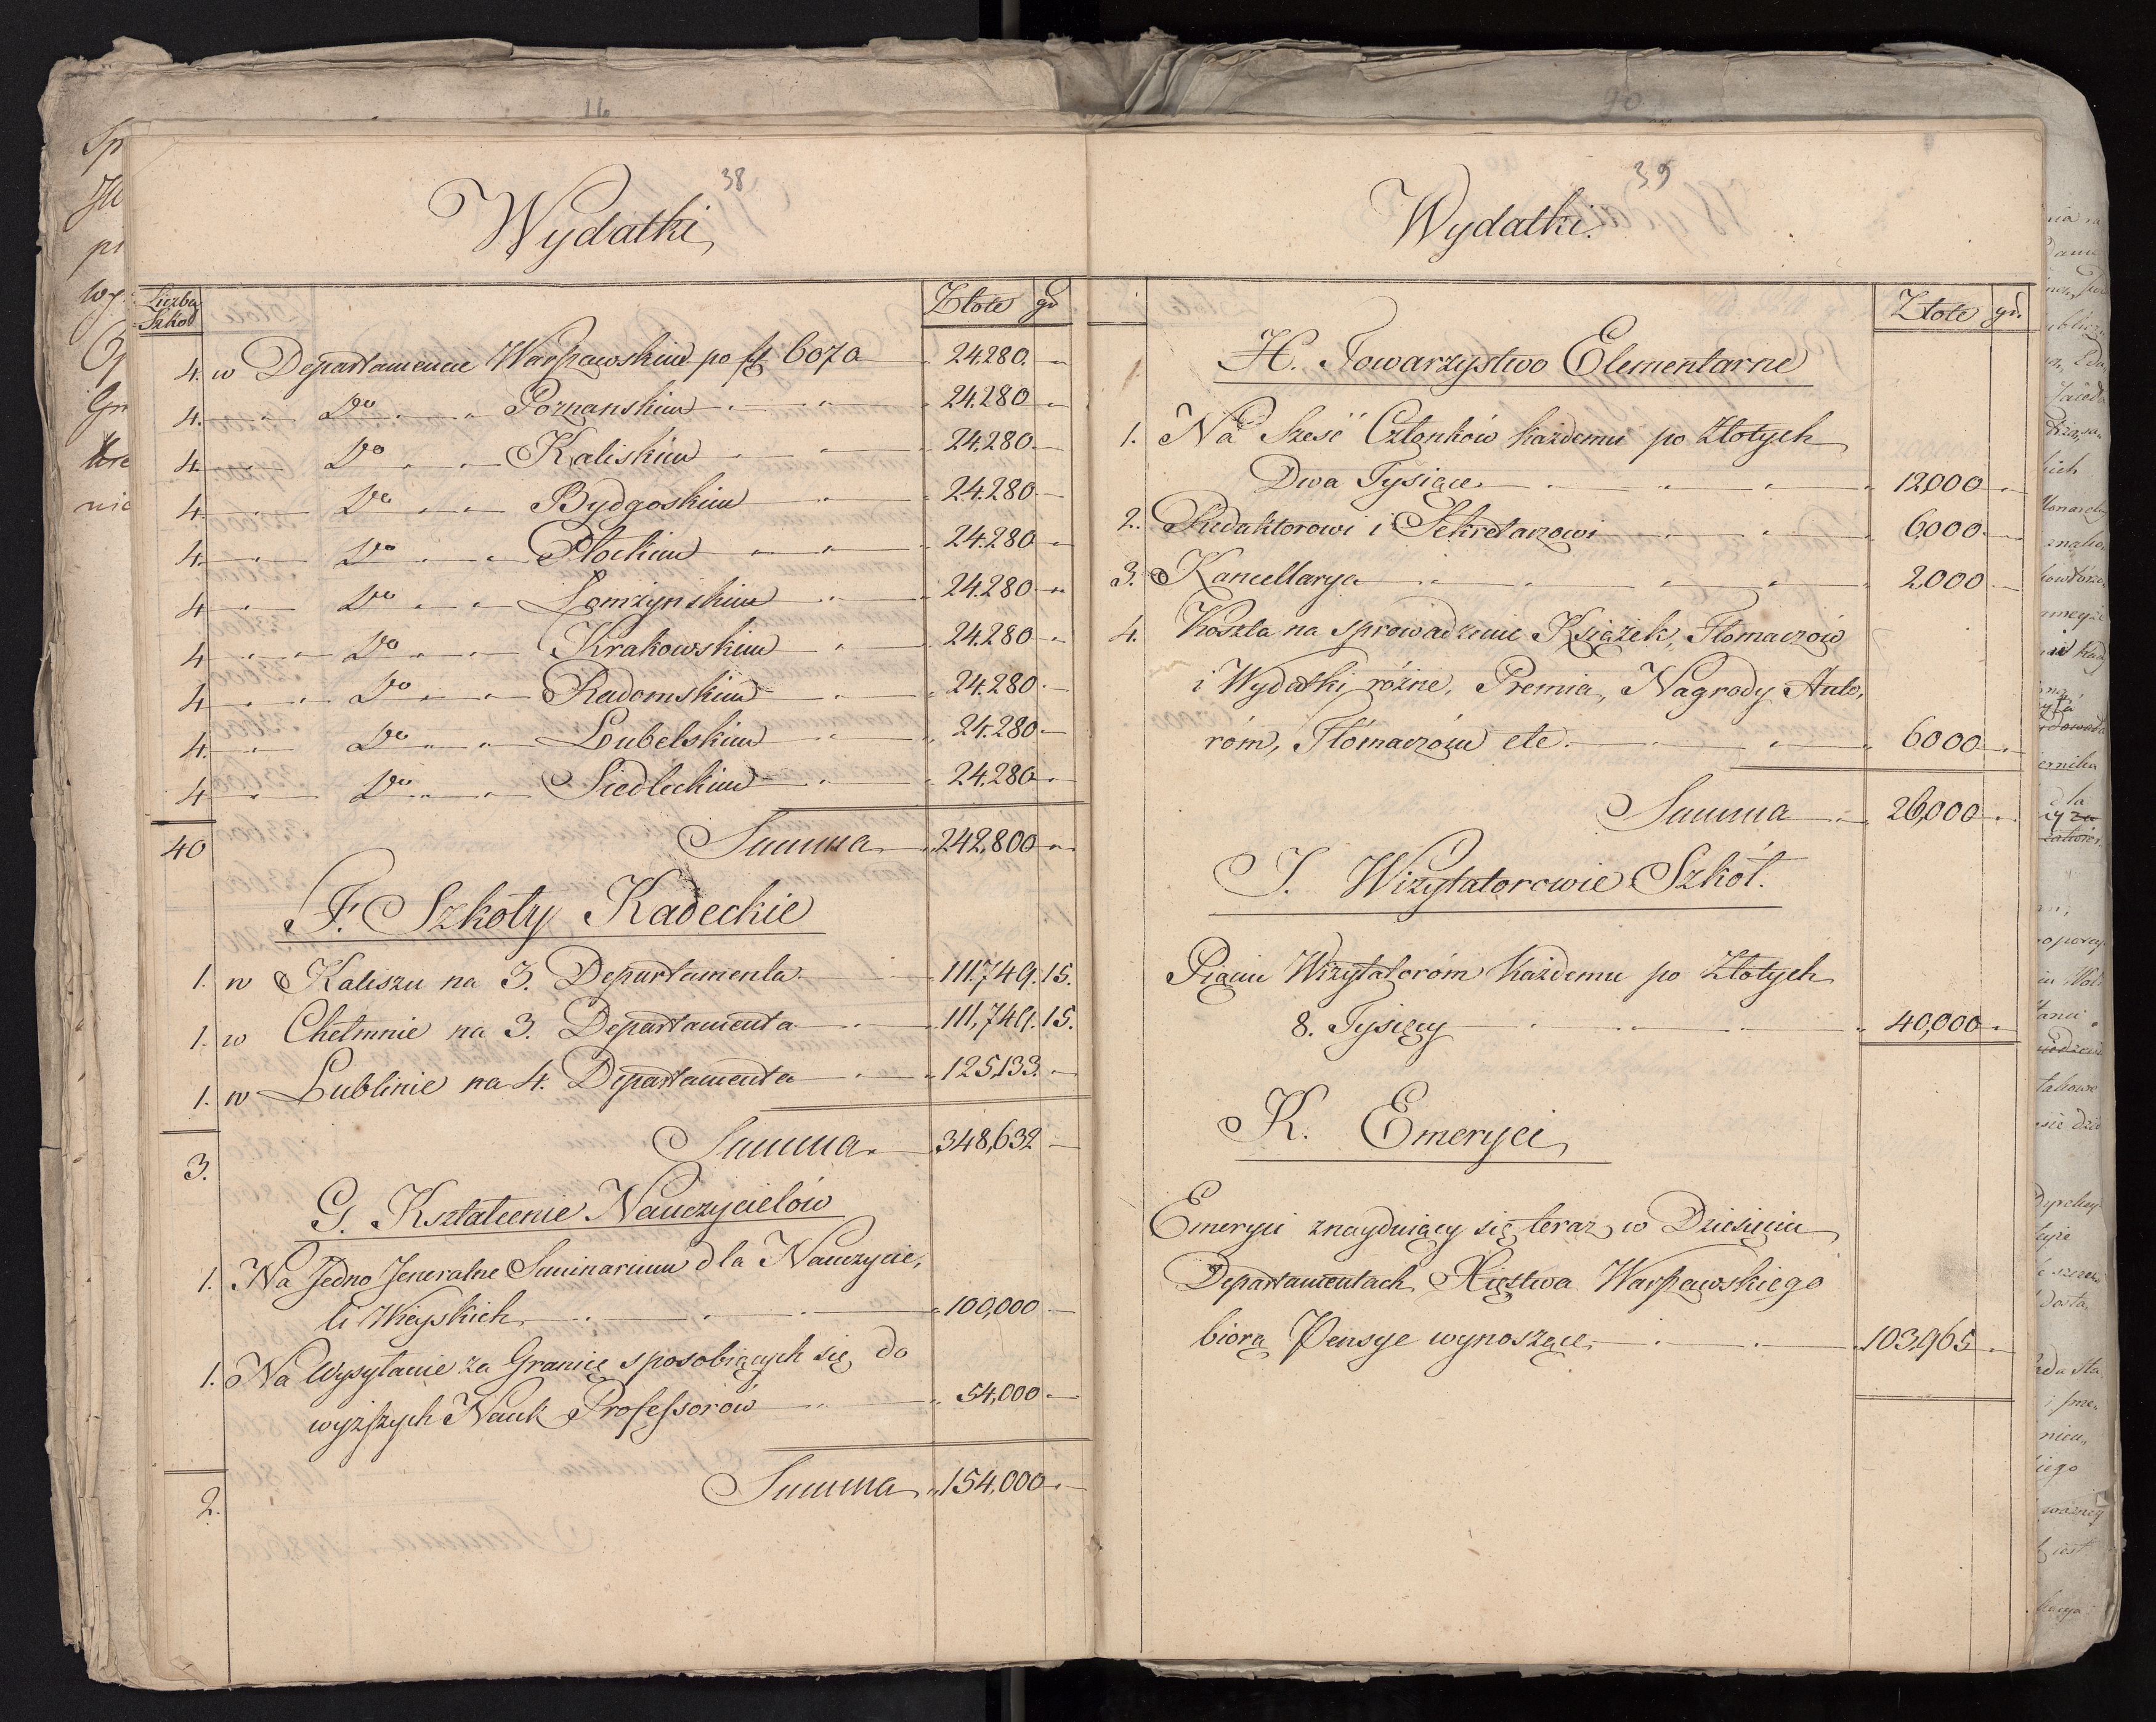 16
38
Wydatki
Liczba Szkoł
Złote gr
4. w Departamencie Warszawskim po fl 6070 24.280.
4. Do Poznanskim 24.280
4. Do Kaliskim 24.280
4. Do Bydgoskim 24.280
4. Do Płockim 24.280
4. Do Łomżyńskim 24.280
4. Do Krakowskim 24.280
4. Do Radomskim 24.280
4. Do Lubelskim 24.280
4. Do Siedleckim 24.280
40 Summa 242,800
F. Szkoły Kadeckie
1. w Kaliszu na 3. Departamenta 111.749. 15.
1. w Chełmnie na 3. Departamenta 111,749. 15.
1. w Lublinie na 4. Departamenta 125,133.
3. Summa 348,632
G. Kształcenie Nauczycielów
1. Na Jedno Jeneralne Seminarium dla Nauczycie,
li Wieyskich 100,000
1. Na Wysyłanie za Granicę sposobiących się do
wyższych Nauk Professorów 54,000
2. Summa 154,000
90
39
Wydatki.
Złote gr.
H. Towarzystwo Elementarne
1. Na Sześć Członków każdemu po Złotych
Dwa Tysiące 12,000
2. Redaktorowi i Sekretarzowi 6,000
3. Kancellarya 2,000
4. Koszta na sprowadzenie Książek, Tłomaczów
i Wydatki różne, Premia, Nagrody Auto,
róm, Tłómaczóm etc. 6000
Summa 26,000
J. Wizytatorowie Szkół.
Pięciu Wizytatoróm każdemu po Złotych
8. Tysięcy 40,000
K. Emeryci
Emeryci znayduiący się teraz w Dziesięciu
Departamentach Xięstwa Warszawskiego
biorą Pensye wynoszące 103,965